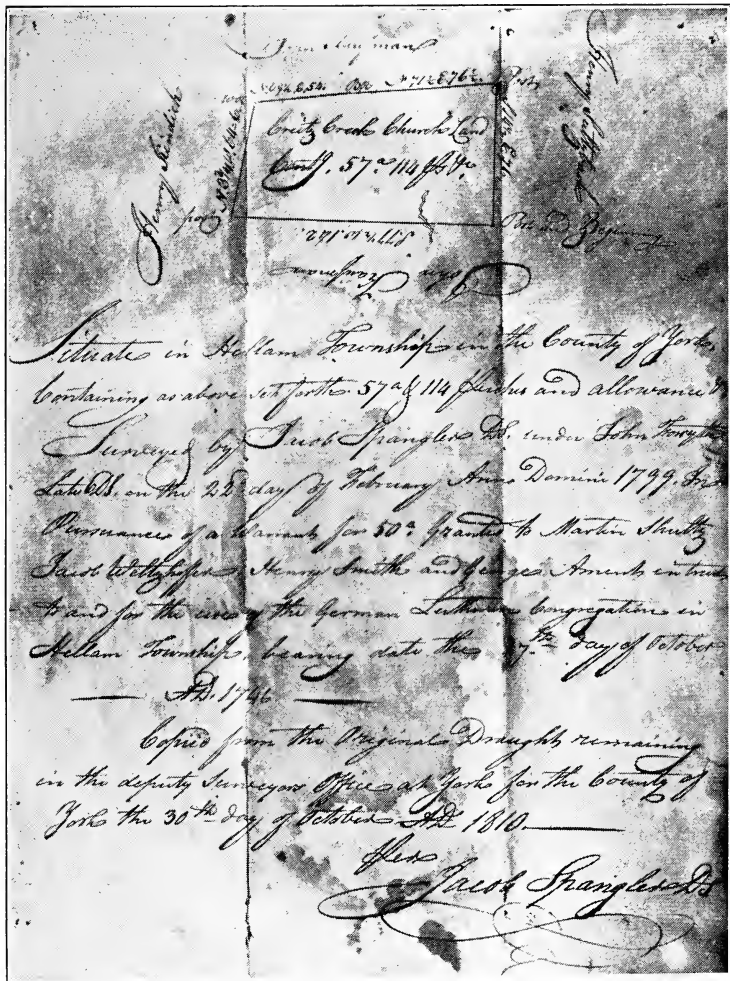 Henry Kindick
Creitz Creek Church Land
Cont.g 57.a 114 ps &c
Post
Situate in Hellam Township in the County of York
Containing as above set forth 57a & 114 perches and allowance &c
Surveyed by Jacob Spangler D.S. under John Forsyth
Late D.S. on the 22d day of February Anno Domini 1799. In
Pursuance of a Warrant for 50a granted to Martin Shultz
Jacob Weltzhoffer Henry Smith and George Ament in trust
to and for the use of the German Lutheran Congregation in
Hellam Township, bearing date the 7th day of October
AD. 1746
Copied from the Original Draught remaining
in the deputy Surveyors Office at York for the County of
York the 30th day of October AD 1810.
Per
Jacob Spangler DS